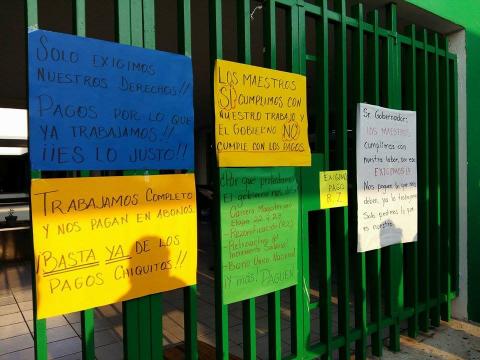 SOLO EXIGIMOS
NUESTROS DERECHOS!!
PAGOS POR LO QUE
YA TRABAJAMOS!!
¡¡ES LO JUSTO!!
TRABAJAMOS COMPLETO
Y NOS PAGAN EN ABONOS.
¡BASTA YA DE LOS
PAGOS CHIQUITOS!!
LOS MAESTROS
SI CUMPLIMOS CON
NUESTRO TRABAJO Y
EL GOBIERNO NO
CUMPLE CON LOS PAGOS
¿Por qué protestamos?
El gobierno nos debe:
- Carrera Magisterial
Etapa 22 y 23
- Rezonificación
- Retroactivo del
Incremento Salarial
- Bono Único Nacional
¡Y más! PAGUEN
EXIGIMOS
PAGO
R. Z
Sr. Gobernador:
LOS MAESTROS
cumplimos con
nuestra labor, por eso
EXIGIMOS!!
Nos paguen lo que nos
deben, ya lo trabajamos
Solo pedimos lo que
es nuestro.